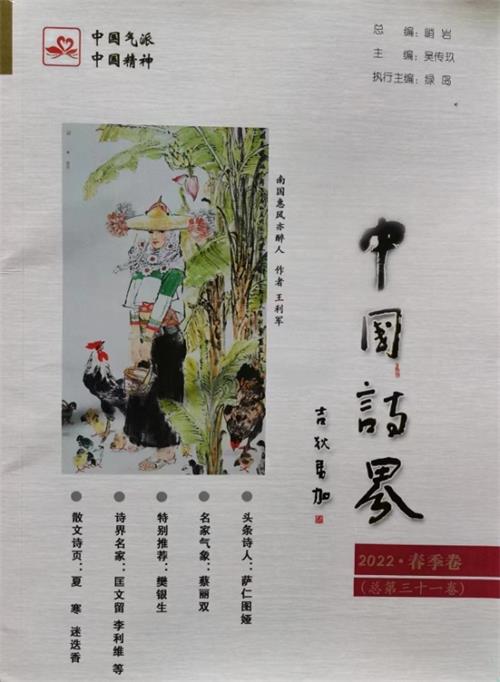 中国气派
中国精神
总 编：峭岩
主 编：吴传玖
执行主编：绿岛
南国惠风亦醉人 作者 王利军
中國詩界
吉狄馬加
2022·春季卷
（总第三十一卷）
头条诗人：萨仁图娅
名家气象：蔡丽双
特别推荐：樊银生
诗界名家：匡文留 李利维 等
散文诗页：夏 寒 迷迭香